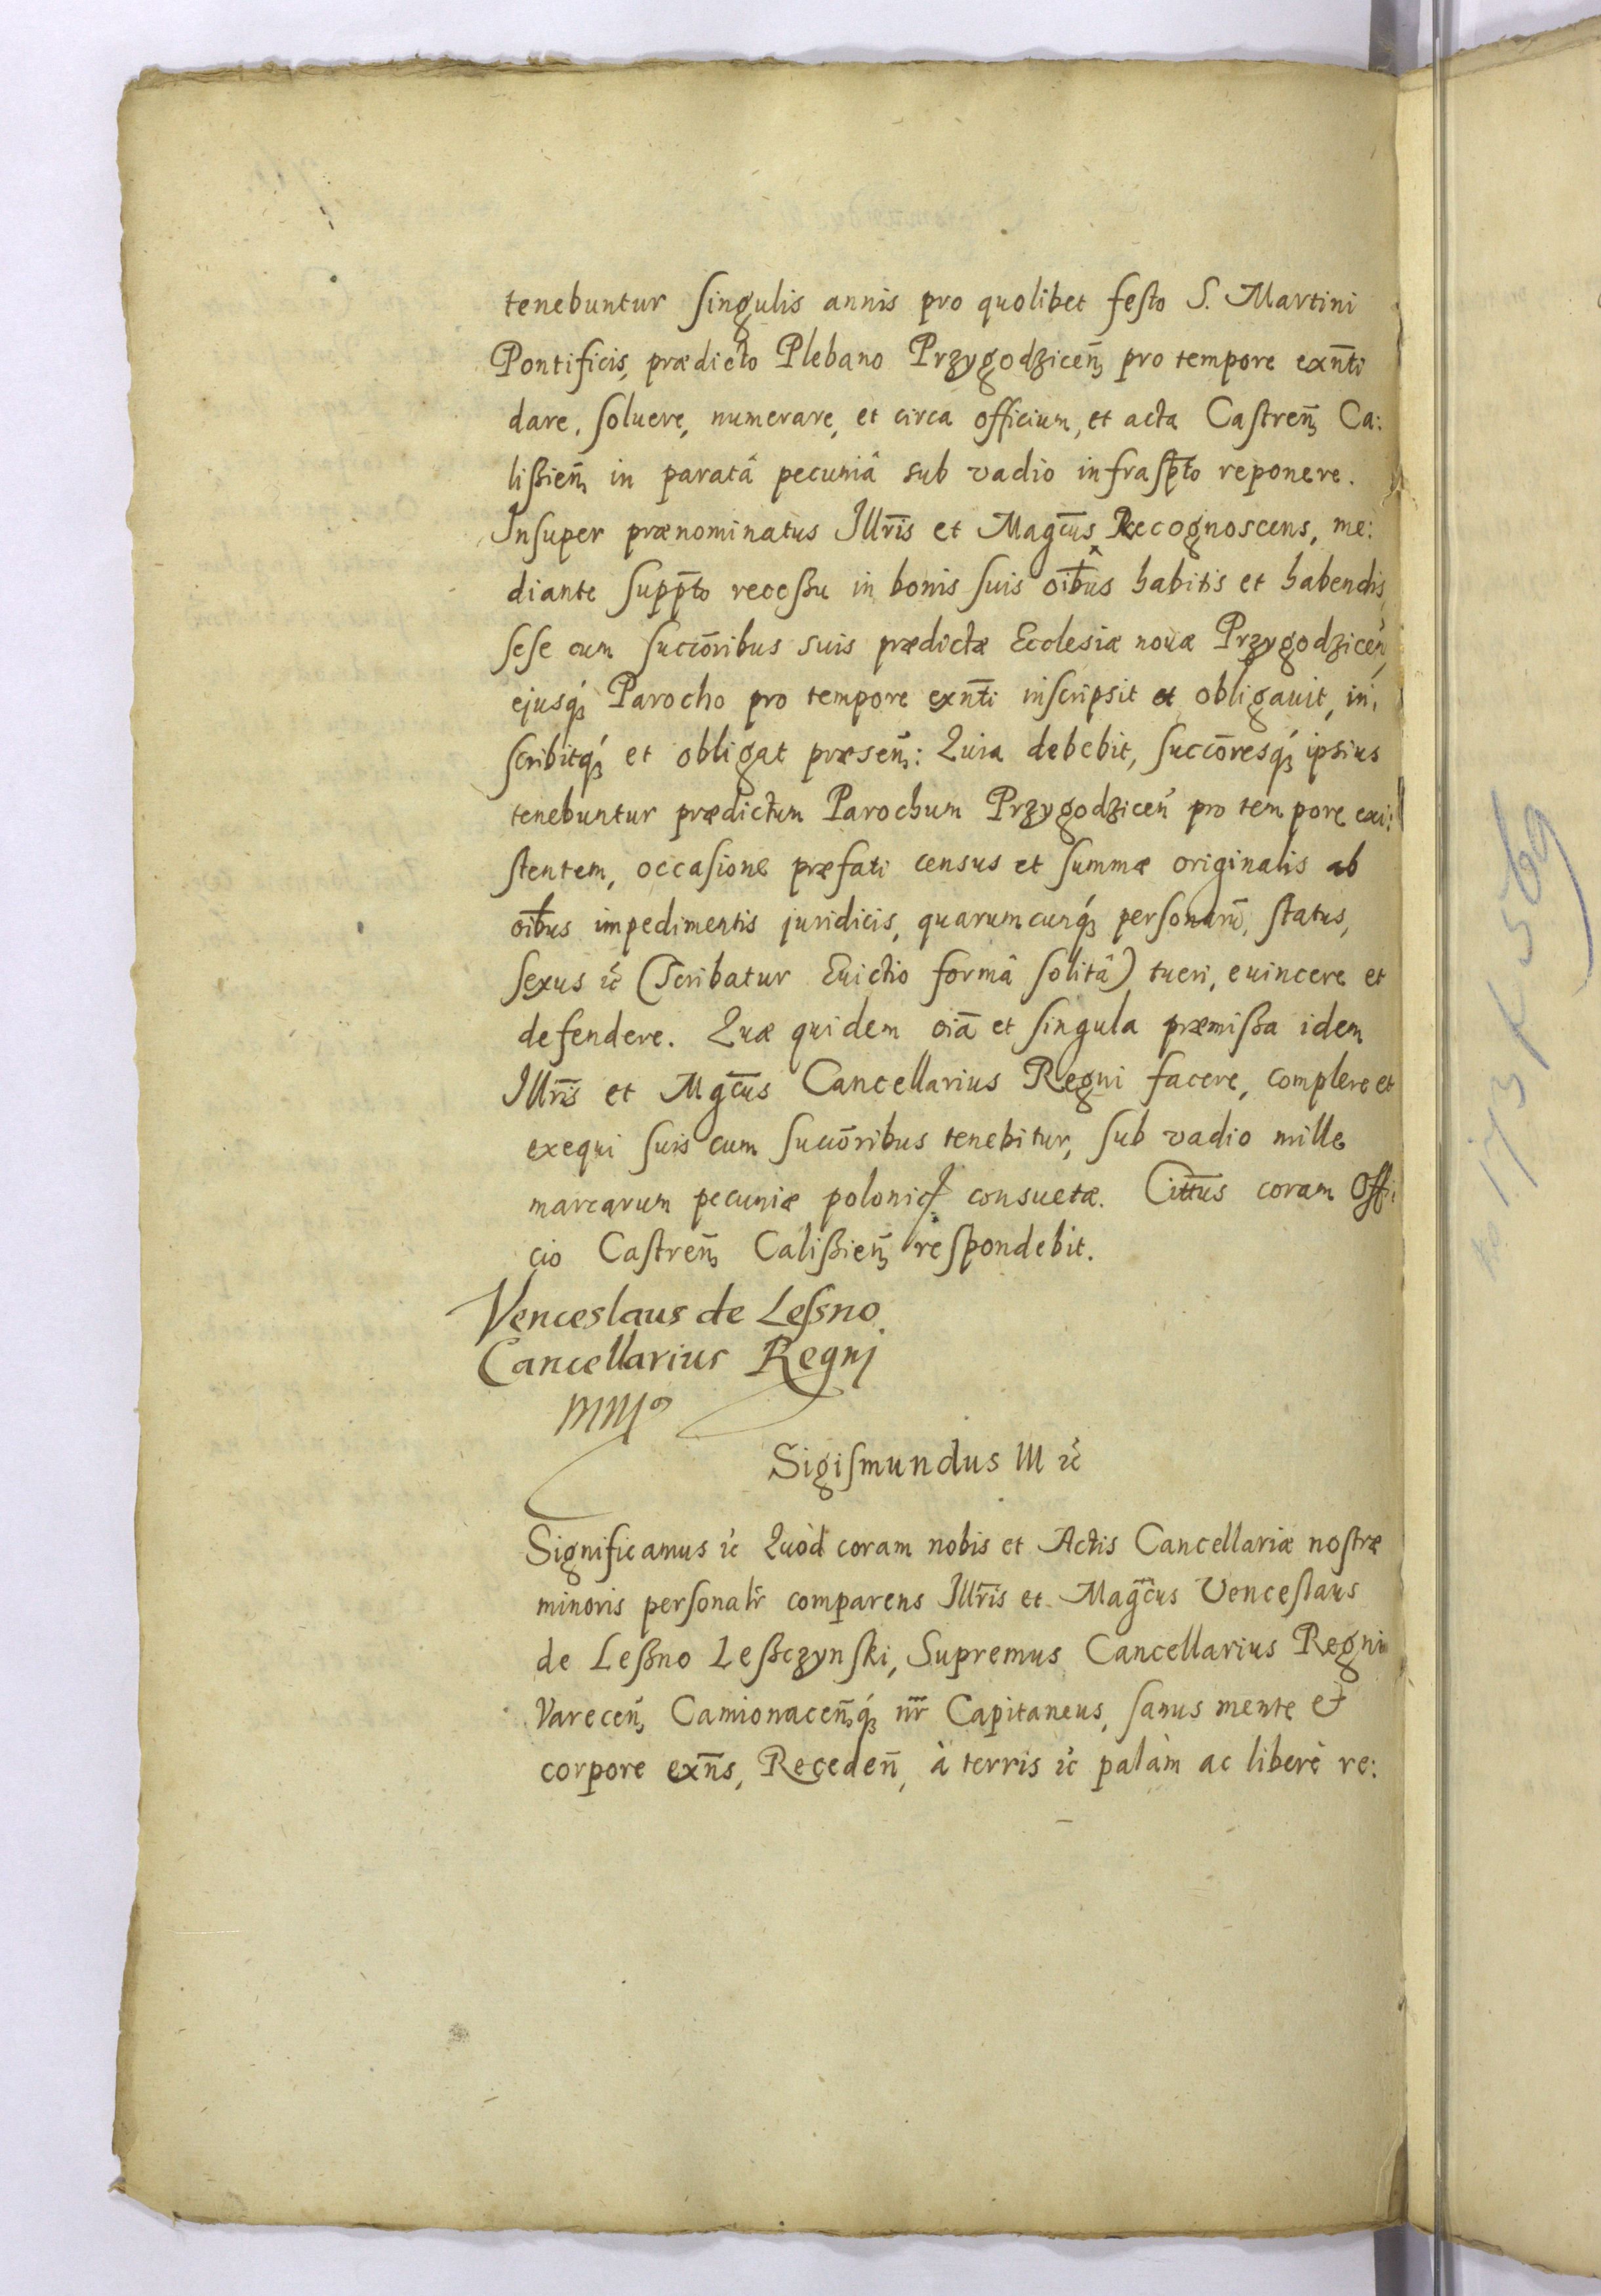 tenebuntur singulis annis pro quolibet festo S. Martini
Pontificis, prædicto Plebano Przygodziceñ pro tempore exn̄ti
dare, soluere, numerare, et circa officium, et acta Castreñ Ca:
lißieñ in paratâ pecuniâ sub vadio infrasp̄to reponere.
Insuper prænominatus Illr̄is et Magc̄us Recognoscens, me:
diante supp̄to recessu in bonis suis oībus habitis et habendis,
sese cum succōribus suis prædictæ Ecclesiæ nouæ Przygodziceñ,
ejusq́ꝫ Parocho pro tempore exn̄ti inscripsit et obligauit, in:
scribitq́ꝫ et obligat præseñ: Quia debebit, succōresq́ꝫ ipsius
tenebuntur prædictum Parochum Przygodziceñ pro tempore exi:
stentem, occasione præfati census et summæ originalis ab
oībus impedimentis juridicis, quarumcunq́ꝫ personarū, status,
sexus ꝛc̄ (Scribatur Euictio formâ solitâ) tueri, euincere et
defendere. Quæ quidem oīa et singula præmißa idem
Illr̄is et Mgc̄us Cancellarius Regni facere, complere et
exequi suis cum succōribus tenebitur, sub vadio mille
marcarum pecuniæ polonicę consuetæ. Citt̄us coram Offi
cio Castreñ Calißieñ respondebit.
Venceslaus de Lessno
Cancellarius Regnj
mmp
Sigismundus III ꝛc̄
Significamus ꝛc̄ Quòd coram nobis et Actis Cancellariæ nostræ
minoris personalr̄ comparens Illr̄is et Magc̄us Venceslaus
de Leßno Leßczynski, Supremus Cancellarius Regni
Vareceñ, Camionaceñq́ꝫ nr̄ Capitaneus, sanus mente et
corpore exn̄s, Recedeñ, à terris ꝛc̄ palàm ac liberè re: